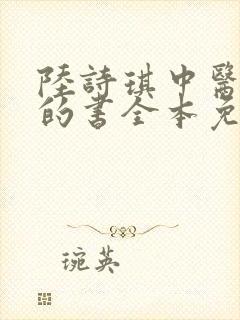 陸詩琪中醫
的書全本免
琬英